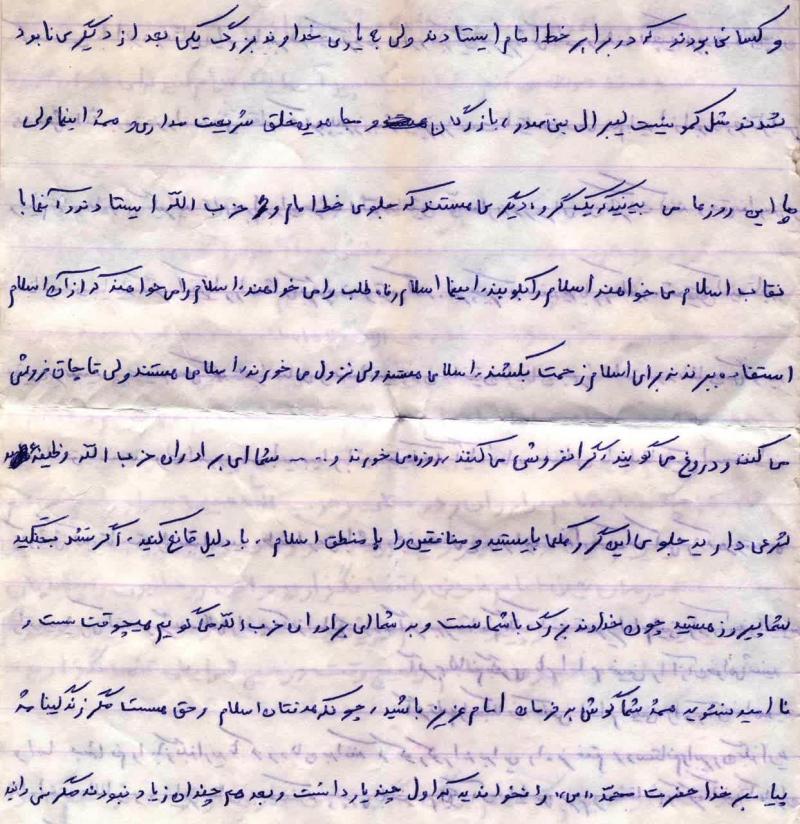 و کسانی بودند که در برابر خط امام ایستادند ولی به یاری خداوند بزرگ یکی بعد از دیگری نابود
شدند مثل کمونیست لیبرال بنی صدر، بازرگان و مجاهدین خلق شریعت مداری و همه اینها ولی
ما این روزها می بینید که یک گروه دیگری هستند که جلوی خط امام و حزب الله ایستادند و آنها با
نقاب اسلام می خواهند اسلام را بکوبند، اینها اسلام رفاه طلب را می خواهند، اسلام را می خواهند که از آن اسلام
استفاده ببرند نه برای اسلام زحمت بکشند، اسلامی هستند ولی نزول می خورند، اسلامی هستند ولی قاچاق فروشی
می کنند و دروغ می گویند، گرانفروشی می کنند، روزه می خورند و ..... شما ای برادران حزب الله وظیفه
شرعی دارید جلوی این گروهکها بایستید و منافقین را با منطق اسلام، با دلیل قانع کنید، اگر نشد بجنگید
شما پیروز هستید چون خداوند بزرگ با شماست و به شما ای برادران حزب الله می گویم هیچوقت سست و
نا امید نشوید همه شما گوش به فرمان امام عزیز باشید، چونکه هدفتان اسلام و حق هست مگر زندگینامه
پیامبر خدا حضرت محمد «ص» را نخواندید که اول چند یار داشت و بعد هم چندان زیاد نبودند مگر نمی دانید